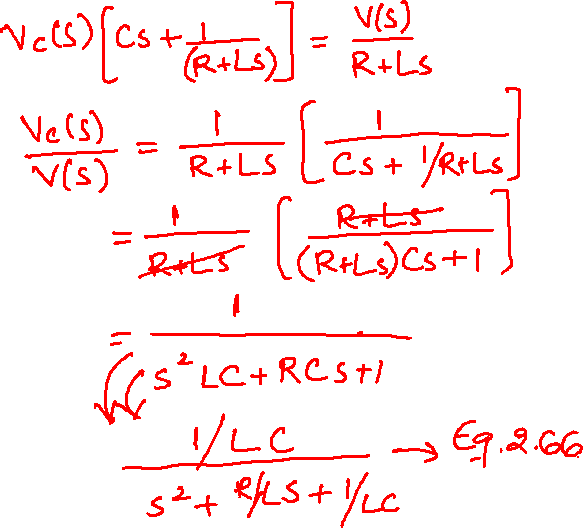 Vc(s)[Cs + 1/(R+Ls)] = V(s)/R+Ls
Vc(s)/V(s) = 1/R+Ls [1/Cs + 1/R+Ls]
= 1/R+Ls [R+Ls/(R+Ls)Cs+1]
= 1/s²LC + RCs+1
1/LC / s² + R/LS + 1/LC → Eq.2.66